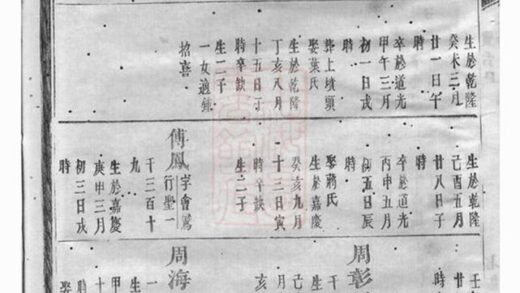 生於乾隆
癸未三月
廿一日午
時
卒於道光
甲午三月
初一日戌
時
葬上墳頭
娶葉氏
生於乾隆
丁亥八月
十五日丁
時卒缺
生二子
一女適鍾
招喜
生於乾隆
己酉五月
廿八日子
時
卒於道光
丙申五月
初五日辰
時
娶蔣氏
生於嘉慶
癸亥九月
十三日寅
時卒缺
生二子
傅鳳
字會鳶
行聖一
千三百十
九
生於嘉慶
庚申三月
初三日戌
時
壬
廿
時
周彰
干
生
己
月
亥
周海
一
生
甲
十
娶